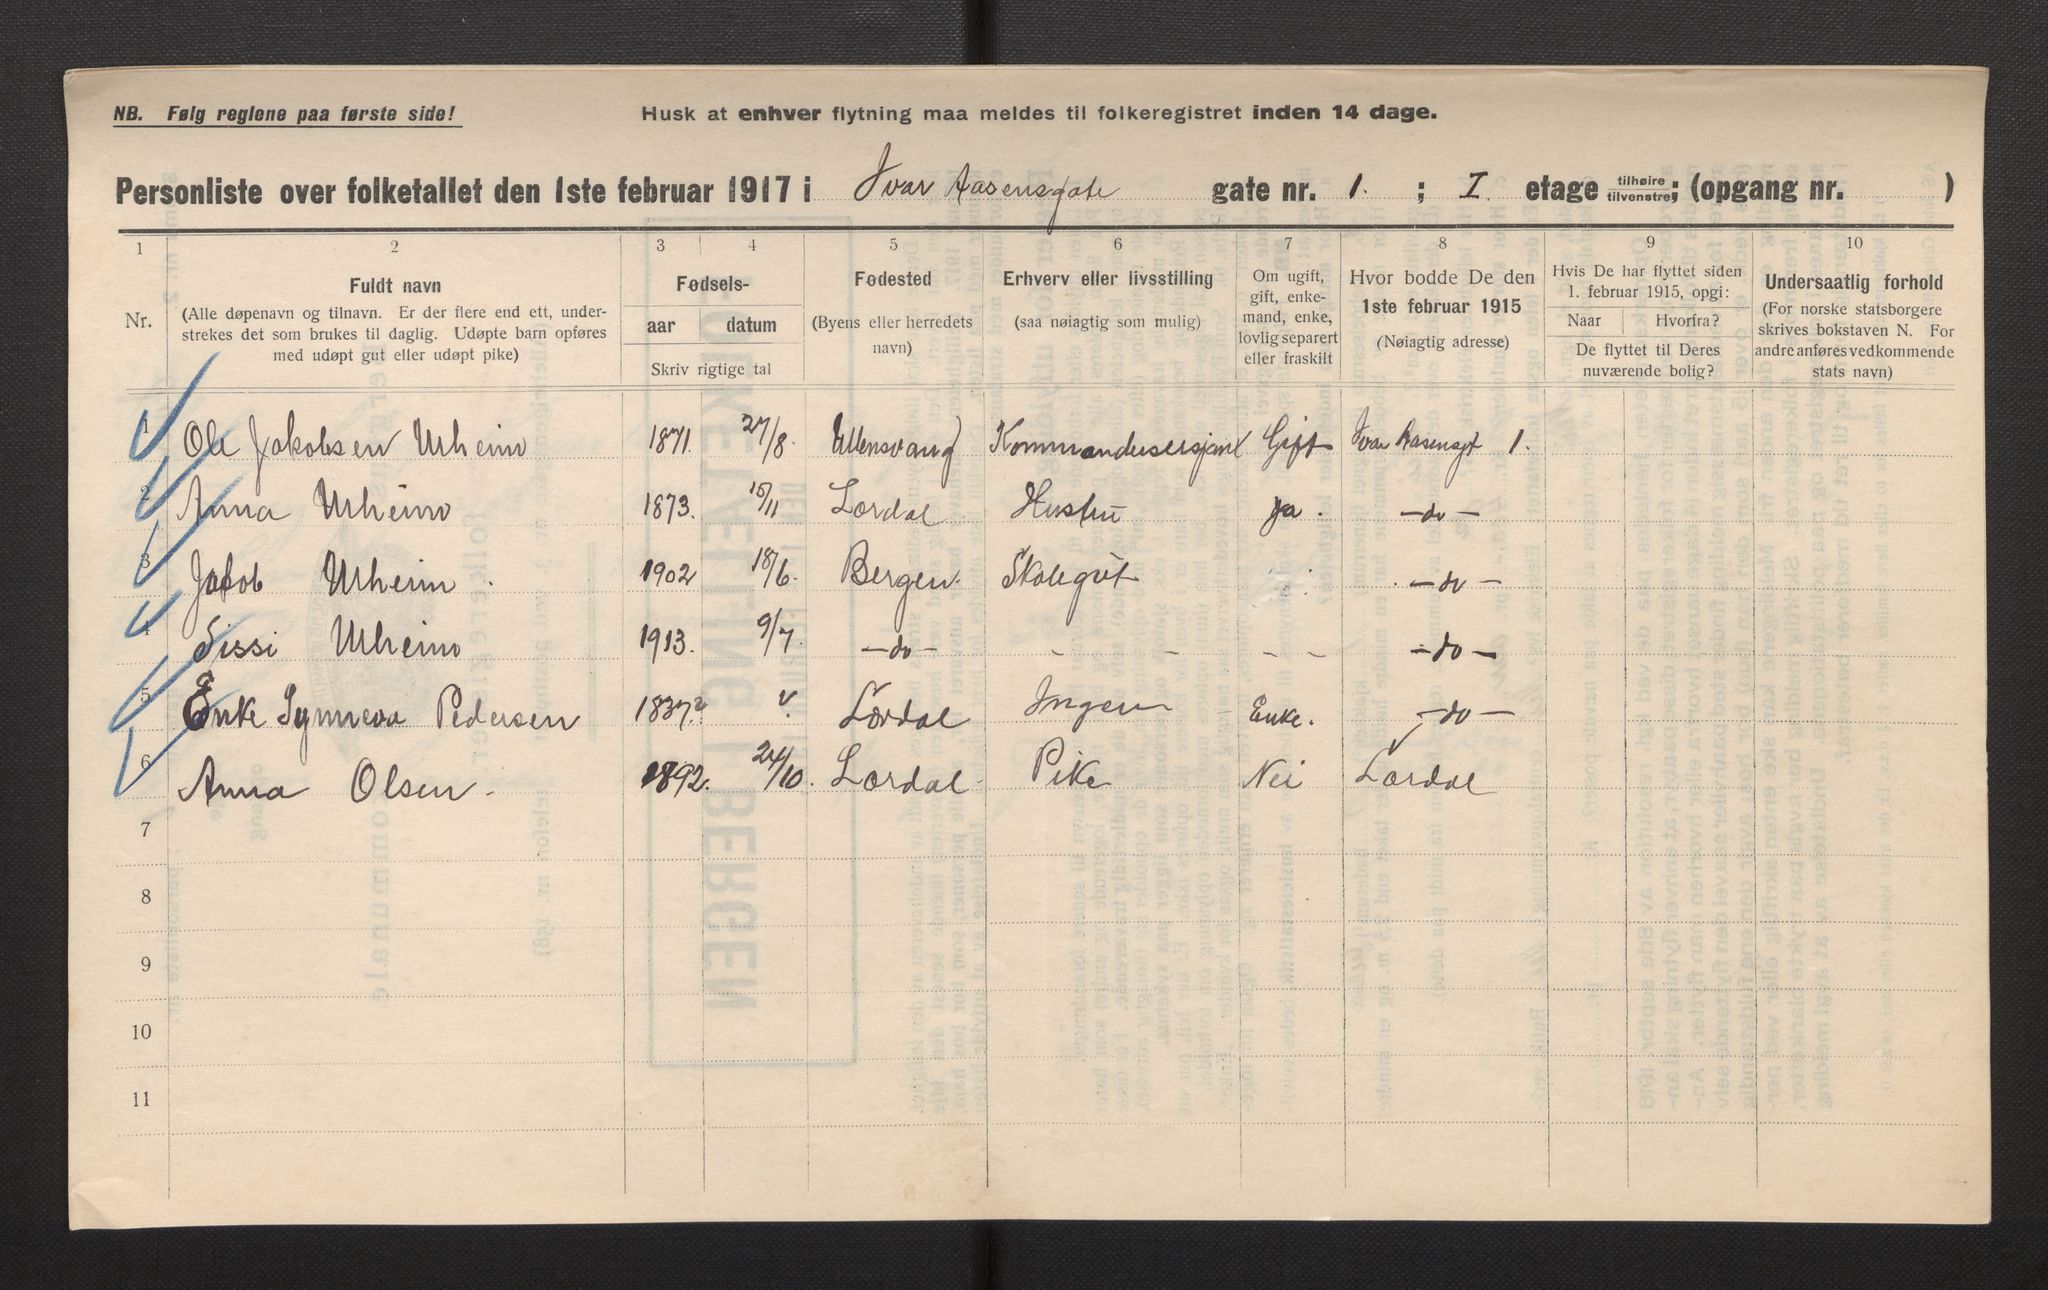 NB. Følg reglene paa første side!
Husk at enhver flytning maa meldes til folkeregistret inden 14 dage.
Personliste over folketallet den 1ste februar 1917 i Ivar Aasensgate gate nr. 1. ; I. etage tilhøire tilvenstre; (opgang nr. )
1 2 3 4 5 6 7 8 9 10
Nr.
Fuldt navn
(Alle døpenavn og tilnavn. Er der flere end ett, under-
strekes det som brukes til daglig. Udøpte barn opføres
med udøpt gut eller udøpt pike)
Fødsels-
aar datum
Skriv rigtige tal
Fødested
(Byens eller herredets
navn)
Erhverv eller livsstilling
(saa nøiagtig som mulig)
Om ugift,
gift, enke-
mand, enke,
lovlig separert
eller fraskilt
Hvor bodde De den
1ste februar 1915
(Nøiagtig adresse)
Hvis De har flyttet siden
1. februar 1915, opgi:
Naar Hvorfra?
De flyttet til Deres
nuværende bolig?
Undersaatlig forhold
(For norske statsborgere
skrives bokstaven N. For
andre anføres vedkommende
stats navn)
1 Ole Jakobsen Urheim 1871. 27/8. Ullensvang Kommandersersjant Gift Ivar Aasensgt 1.
2 Anna Urheim 1873. 15/11 Lærdal Hustru Ja. -do-
3 Jakob Urheim. 1902 18/6. Bergen. Skolegut -do-
4 Sissi Urheim 1913. 9/7. -do- - - - - -do-
5 Enke Synneva Pedersen 1837? Lærdal Ingen Enke. -do-
6 Anna Olsen. 1892. 24/10. Lærdal Pike Nei Lærdal
7
8
9
10
11